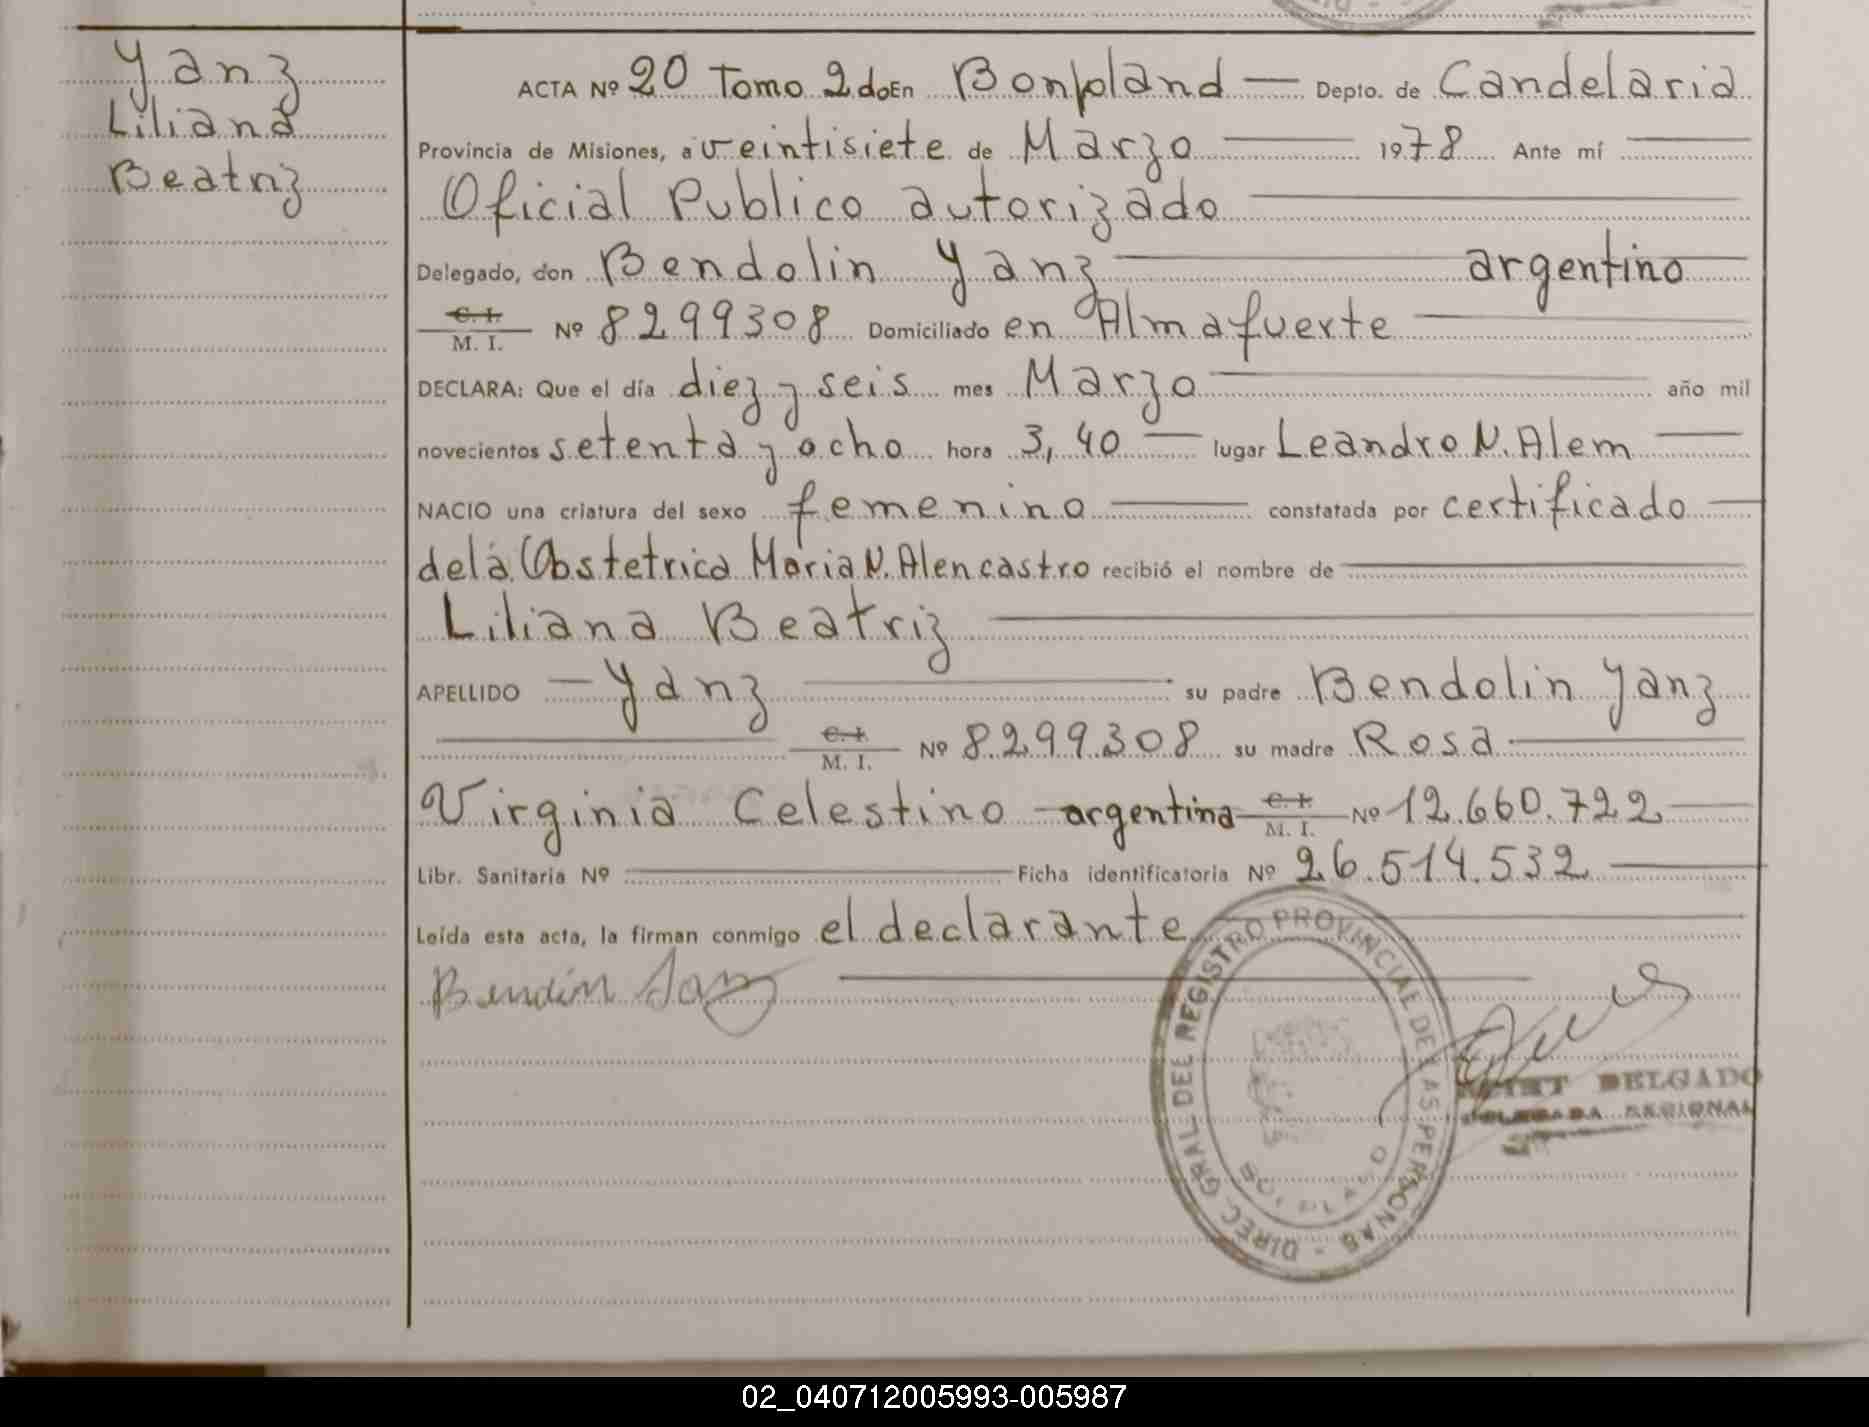 Yanz
Liliana
Beatriz
ACTA Nº 20 Tomo 2do En Bonpland — Depto. de Candelaria
Provincia de Misiones, a veintisiete de Marzo — 1978 Ante mí —
Oficial Publico autorizado —
Delegado, don Bendolin Yanz — argentino
C. I. / M. I. Nº 8299308 Domiciliado en Almafuerte —
DECLARA: Que el día diez y seis mes Marzo — año mil
novecientos setenta y ocho hora 3,40 — lugar Leandro N. Alem —
NACIO una criatura del sexo femenino — constatada por certificado —
de la Obstetrica Maria N. Alencastro recibió el nombre de —
Liliana Beatriz —
APELLIDO — Yanz — su padre Bendolin Yanz
— C. I. / M. I. Nº 8299308 su madre Rosa —
Virginia Celestino argentina C. I. / M. I. Nº 12.660.722 —
Libr. Sanitaria Nº — Ficha identificatoria Nº 26.514.532 —
Leída esta acta, la firman conmigo el declarante
DIREC. GRAL. DEL REGISTRO PROVINCIAL DE LAS PERSONAS -
BONPLAND
DELGADO
DELEGADA REGIONAL
02_040712005993-005987